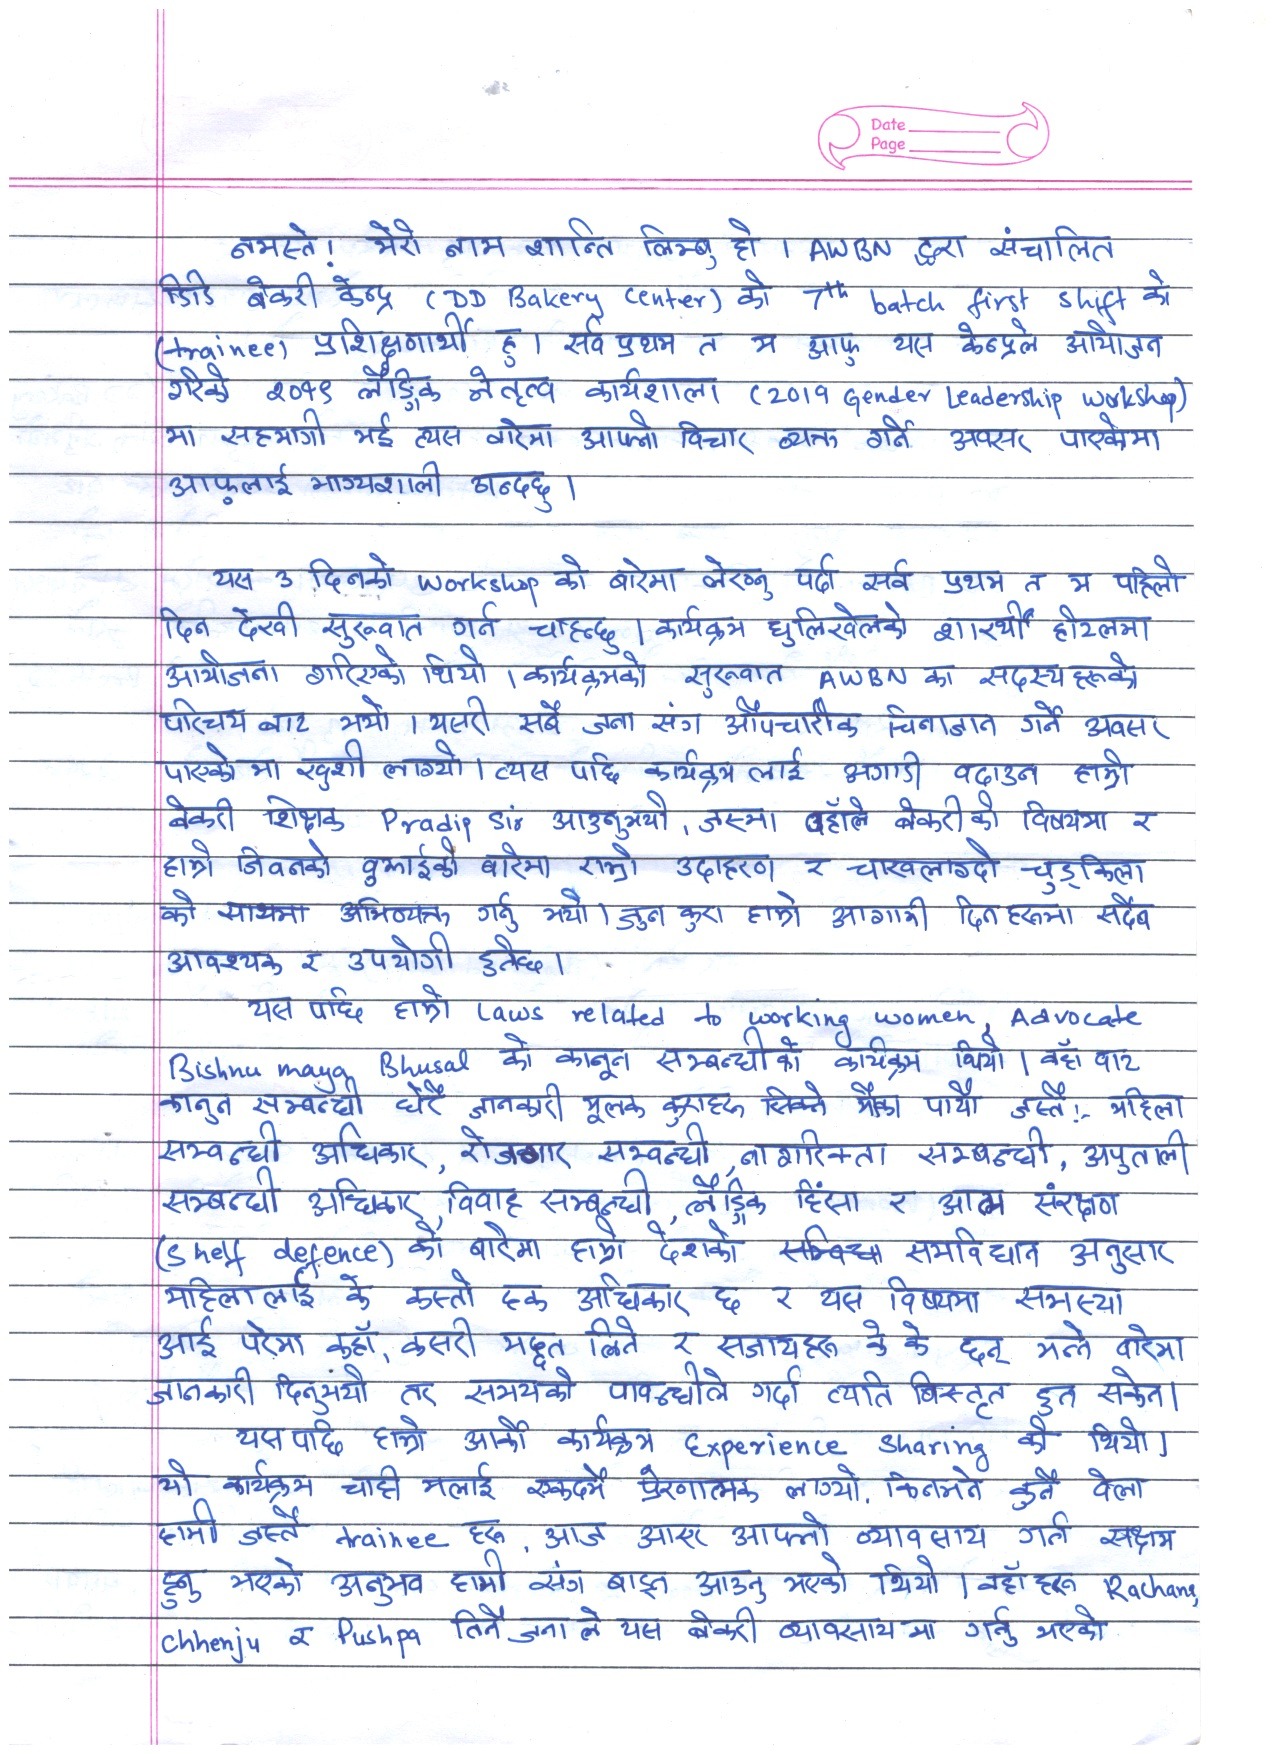 Date
Page
नमस्ते! मेरो नाम शान्ति लिम्बु हो । AWBN द्वारा संचालित
डिडि बेकरी केन्द्र (DD Bakery Center) को 7th batch first shift को
(trainee) प्रशिक्षणार्थी हु । सर्व प्रथम त म आफु यस केन्द्रले आयोजन
गरेको २०१९ लैङ्गिक नेतृत्व कार्यशाला (2019 Gender Leadership Workshop)
मा सहभागी भई त्यस बारेमा आफ्नो विचार व्यक्त गर्ने अवसर पाएकोमा
आफुलाई भाग्यशाली ठान्दछु ।
यस ३ दिनको workshop को बारेमा लेख्नु पर्दा सर्व प्रथम त म पहिलो
दिन देखी सुरूवात गर्न चाहन्छु । कार्यक्रम धुलिखेलको शारथी होटलमा
आयोजना गरिएको थियो । कार्यक्रमको सुरूवात AWBN का सदस्य हरूको
परिचय बाट भयो । यसरी सबै जना संग औपचारीक चिनाजान गर्ने अवसर
पाएको मा खुशी लाग्यो । त्यस पछि कार्यक्रम लाई अगाडी बढाउन हाम्रो
बेकरी शिक्षक Pradip sir आउनुभयो, जस्मा उहाँले बेकरी को विषयमा र
हाम्रो जिवनको बुझाईको बारेमा राम्रो उदाहरण र चाखलाग्दो चुड्किला
को साथमा अभिव्यक्त गर्नु भयो । जुन कुरा हाम्रो आगामी दिन हरूमा सदैब
आवश्यक र उपयोगी हुनेछ ।
यस पछि हाम्रो Laws related to working women, Advocate
Bishnu maya Bhusal को कानून सम्बन्धीको कार्यक्रम थियो । वहाँ बाट
कानुन सम्बन्धी धेरै जानकारी मूलक कुराहरू सिक्ने मौका पायौ जस्तै:- महिला
सम्बन्धी अधिकार, रोजगार सम्बन्धी, नागरिक्ता सम्बन्धी, अपुताली
सम्बन्धी अधिकार, विवाह सम्बन्धी, लैङ्गिक हिंसा र आत्म संरक्षण
(shelf defence) को बारेमा हाम्रो देशको समविधान अनुसार
महिला लाई के कस्तो हक अधिकार छ र यस विषयमा समस्या
आई परेमा कहाँ, कसरी मद्दत लिने र सजायहरू के के छन् भन्ने बारेमा
जानकारी दिनुभयो तर समयको पाबन्धीले गर्दा त्यति बिस्तृत हुन सकेन ।
यस पछि हाम्रो अर्को कार्यक्रम Experience sharing को थियो ।
यो कार्यक्रम चाही मलाई एकदमै प्रेरणात्मक लाग्यो, किनभने कुनै बेला
हामी जस्तै trainee हरू, आज आएर आफ्नो व्यावसाय गर्न सक्षम
हुनु भएको अनुभव हामी संग बाड्न आउनु भएको थियो । वहाँ हरू Rachana,
Chhenju र Pushpa तिनै जना ले यस बेकरी व्यावसाय मा गर्नु भएको